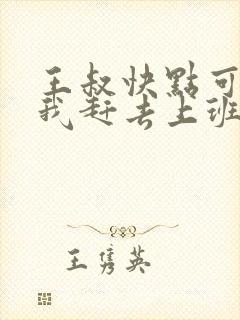 王叔快點可
我赶去上班
王隽英